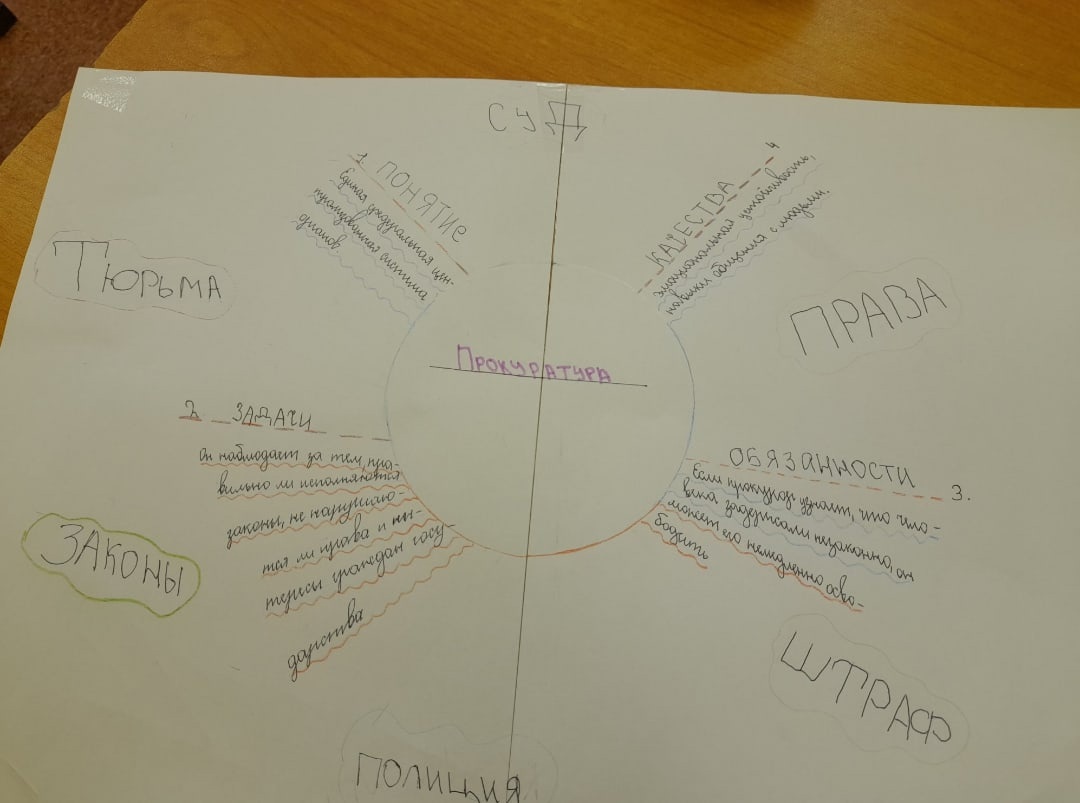 СУД
1 ПОНЯТИЕ
Единая федеральная цен-
трализованная система
органов.
КАЧЕСТВА 4
Эмоциональная устойчивость,
навыки общения с людьми.
Тюрьма
ПРАВА
Прокуратура
2 ЗАДАЧИ
Он наблюдает за тем, пра-
вильно ли исполняются
законы, не нарушаю-
тся ли права и ин-
тересы граждан госу-
дарства
ОБЯЗАННОСТИ 3.
Если прокурор узнает, что чело-
века задержали незаконно, он
может его немедленно осво-
бодить
ЗАКОНЫ
ШТРАФ
ПОЛИЦИЯ